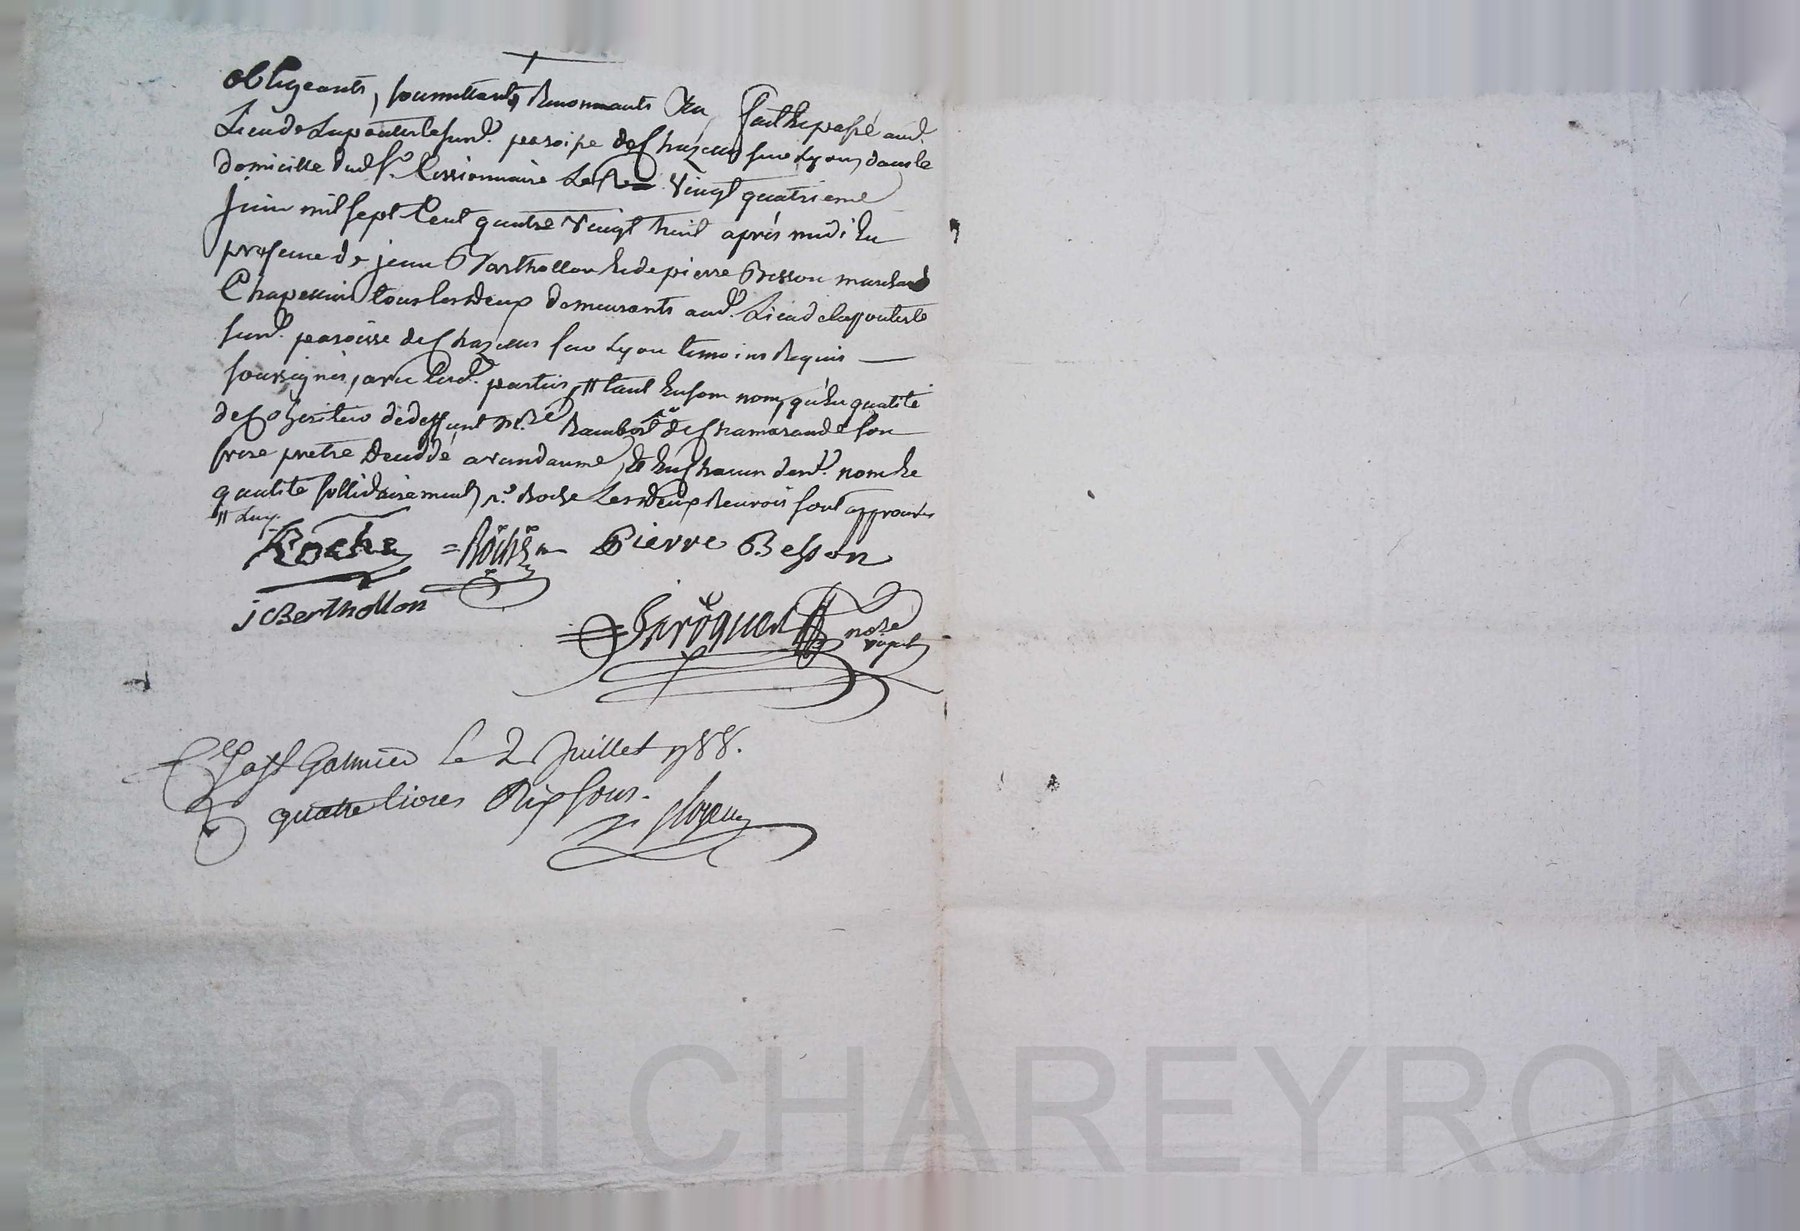 obligeants, soumettants, Renonceants &a, fait & passé aud.
Lieu de Lapouterle surd. paroisse de Chazeus sur Lyon, dans le
domicille dud. Sr. Cessionnaire Le vingt quatrieme
juin mil sept Cent quatre vingt huit après midi En
presence de jean Barthollon & de pierre Besson marchand
Chapellier tous les deux demeurants aud. Lieu
surd. paroisse de Chazeus sur Lyon temoins Requis
soussignés, avec lesd. parties, // tant En son nom, qu'En qualité
de Coheritier de deffunt Rambert de Chamarande son
frere pretre decedé a vandaume, & En Chacun desd. nom &
qualité sollidairement, Roche Les deux Renvois sont approuvés
// Luy
Roche = Roche Pierre Besson
j Berthollon
nore royal
a St Galmier le 2 Juillet 1788.
quatre livres Dix sous.
Pascal CHAREYRON